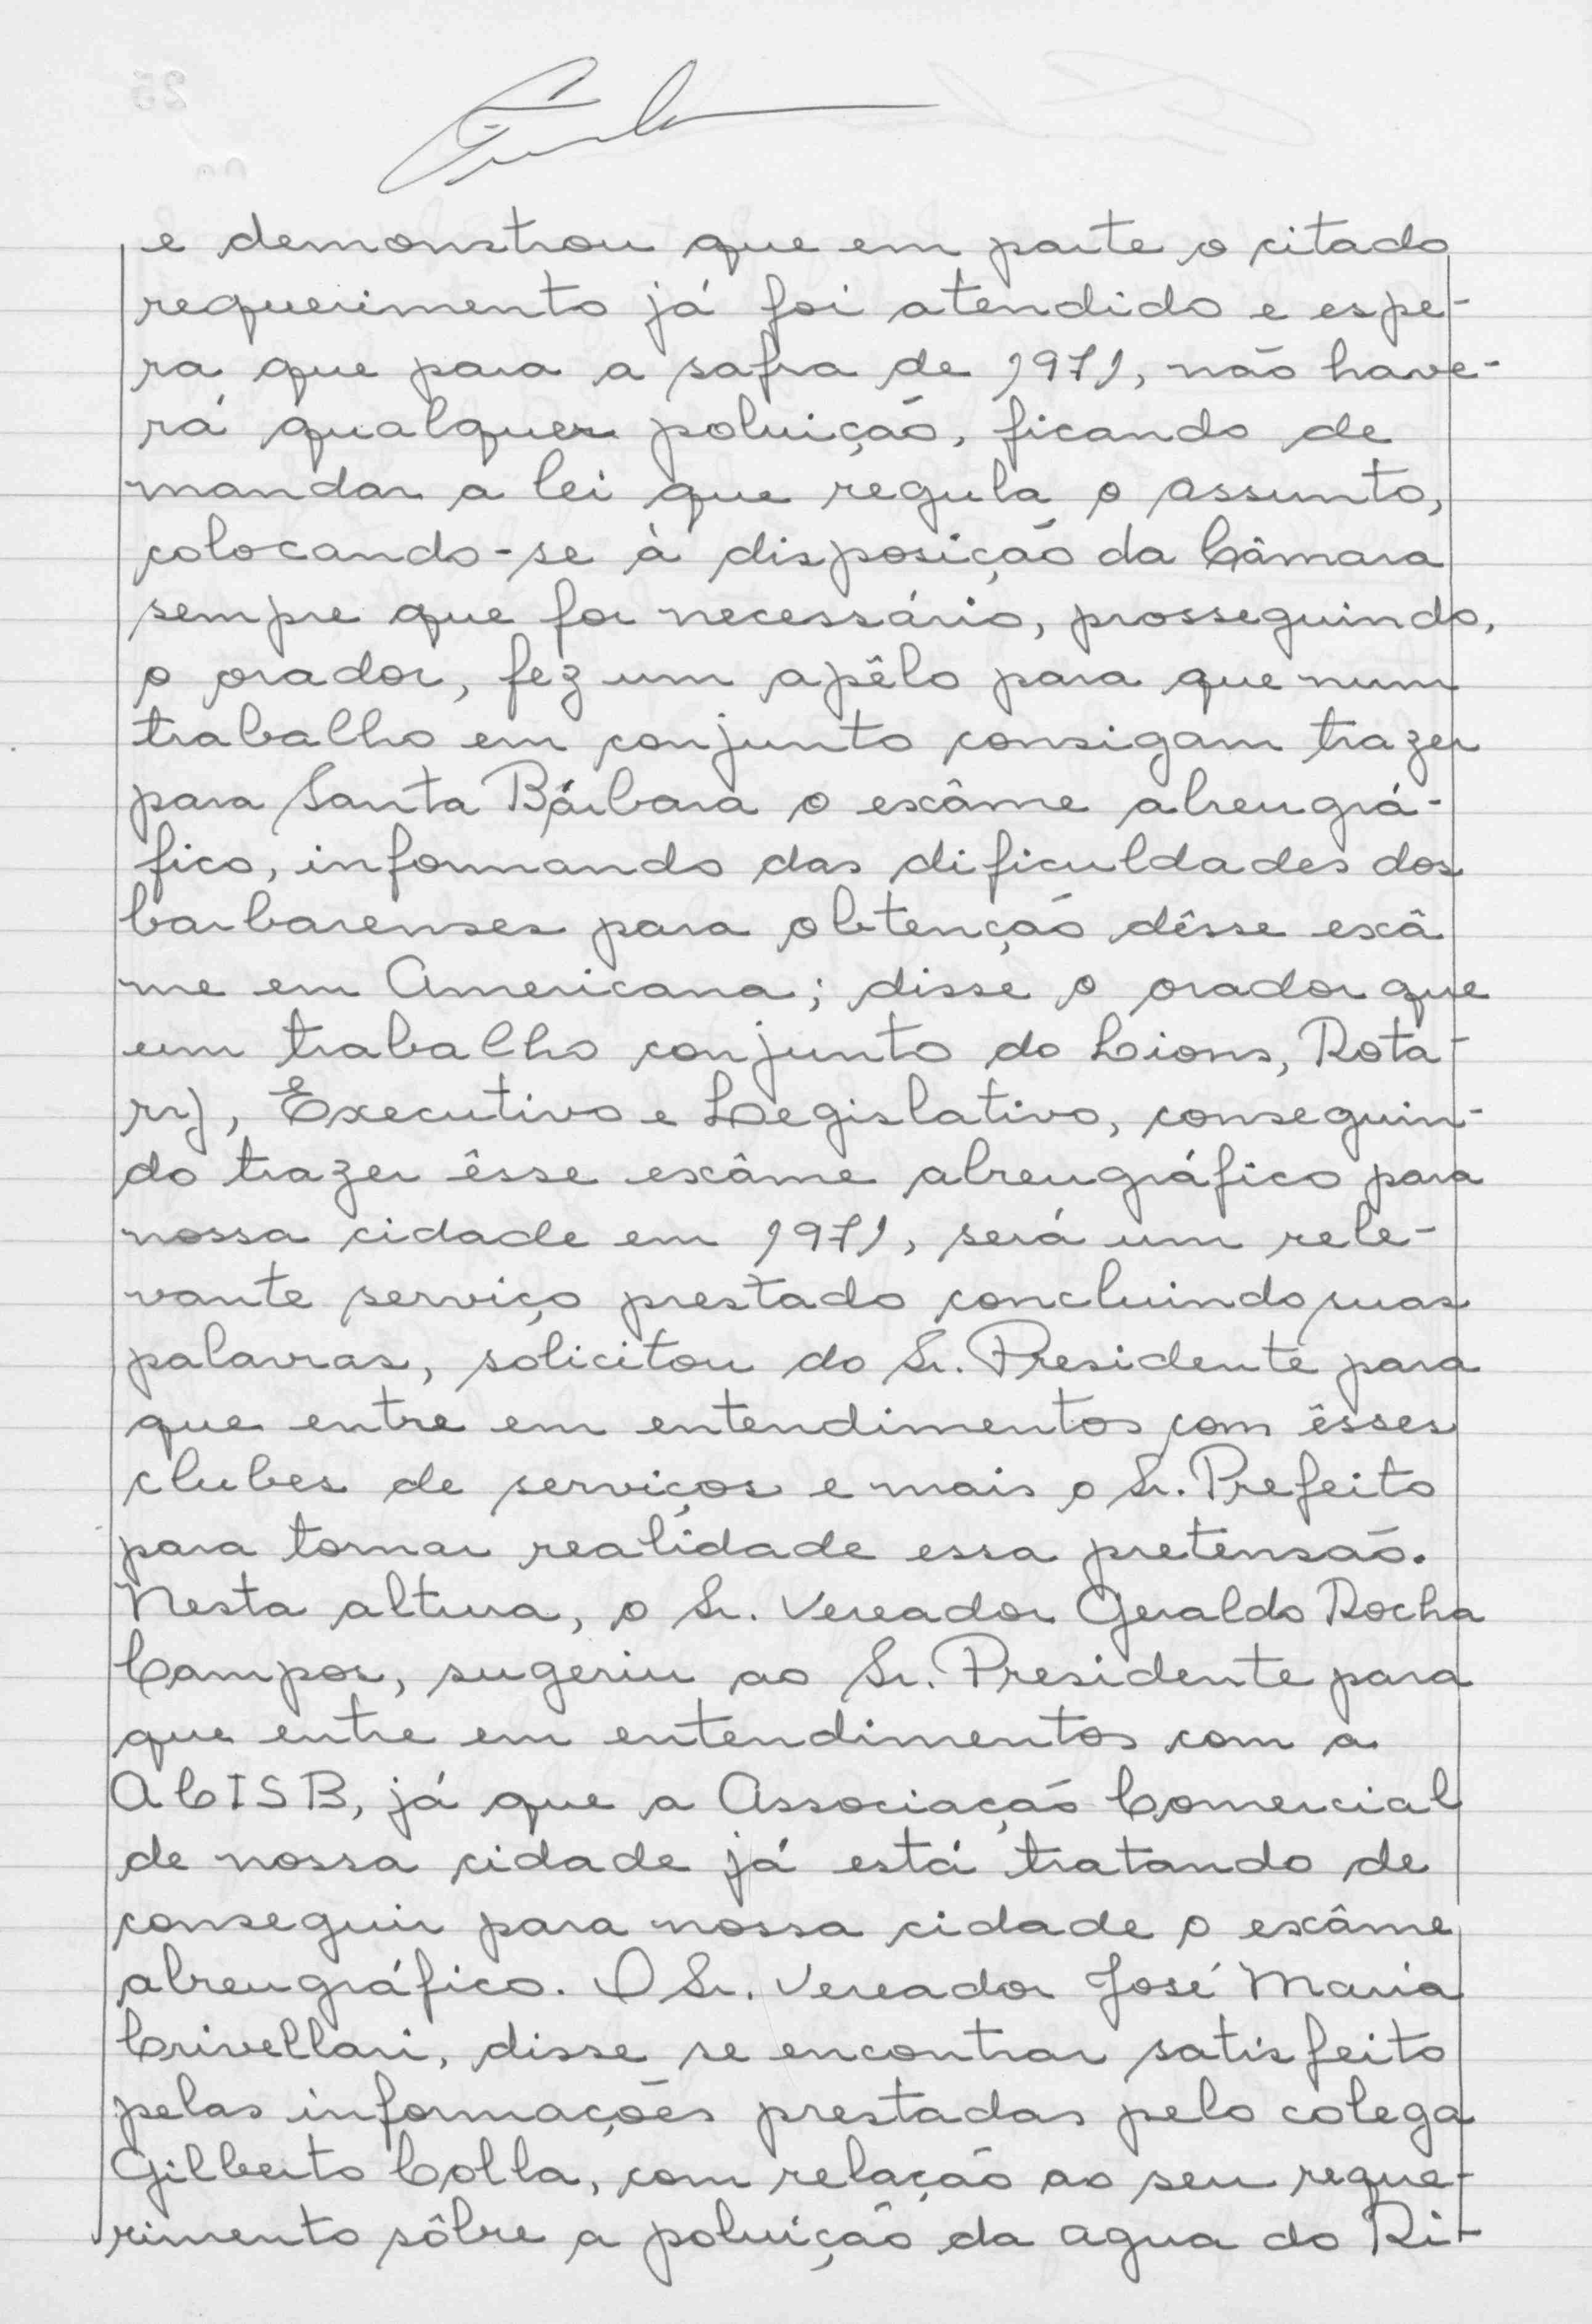 e demonstrou que em parte o citado
requerimento já foi atendido e espe-
ra que para a safra de 1971, não have-
rá qualquer poluição, ficando de
mandar a lei que regula o assunto,
colocando-se à disposição da Câmara
sempre que for necessário, prosseguindo,
o orador, fez um apêlo para que num
trabalho em conjunto consigam trazer
para Santa Bárbara o exâme abreugrá-
fico, informando das dificuldades dos
barbarenses para obtenção dêsse exâ
me em Americana; disse o orador que
um trabalho conjunto do Lions, Rota-
ry, Executivo e Legislativo, conseguin-
do trazer êsse exâme abreugráfico para
nossa cidade em 1971, será um rele-
vante serviço prestado concluindo suas
palavras, solicitou do Sr. Presidente para
que entre em entendimentos com êsses
clubes de serviços e mais o Sr. Prefeito
para tornar realidade essa pretensão.
Nesta altura, o Sr. Vereador Geraldo Rocha
Campos, sugeriu ao Sr. Presidente para
que entre em entendimentos com a
ACISB, já que a Associação Comercial
de nossa cidade já está tratando de
conseguir para nossa cidade o exâme
abreugráfico. O Sr. Vereador José Maria
Crivellari, disse se encontrar satisfeito
pelas informações prestadas pelo colega
Gilberto Colla, com relação ao seu reque-
rimento sôbre a poluição da agua do Ri-